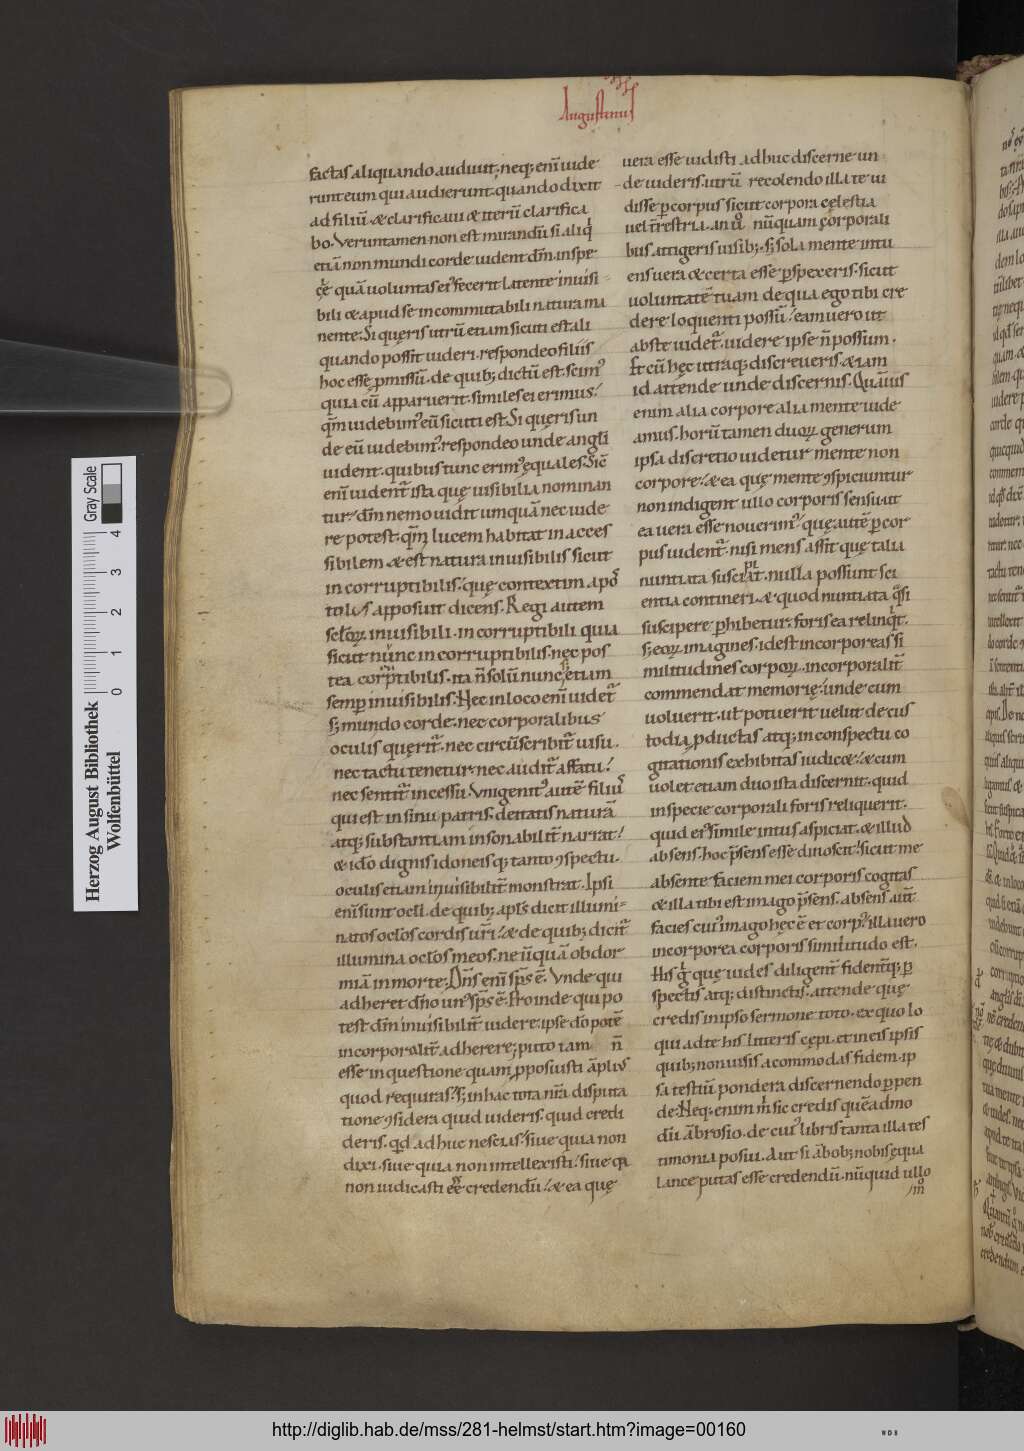 Augustinus
factas aliquando audiuit; neq; eni̅ uide
runt eum qui audierunt. quando dixit
ad filiu̅. & clarificaui & iteru̅ clarifica
bo. Veruntamen non est mirandu̅ si aliq
etia̅ non mundi corde uident dm̅. in spe
cie qua̅ uoluntas ei᾽ fecerit latente inuisi
bili & apud se incommutabili natura ma
nente. Si queris utru̅ etiam sicuti est ali
quando possit uideri. respondeo filiis
hoc esse pmissu̅. de quib; dictu̅ est. scim᾽
quia cu̅ apparuerit. similes ei erimus.
qm̅ uidebim᾽ eu̅ sicuti est. Si queris un
de eu̅ uidebim᾽. respondeo unde angli
uident. quibus tunc erim᾽ ęquales. Sic̅
eni̅ uident᷑ ista quę uisibilia nominan
tur. dm̅ nemo uidit umqua̅ nec uide
re potest. qm̅ lucem habitat in acces
sibilem. & est natura inuisibilis sicut
in corruptibilis. quę contextim apo̅s
tolus apposuit dicens. Regi autem
sclo̅ꝝ. inuisibili. in corruptibili quia
sicut nunc incorruptibilis. nec pos
tea corruptibilis. ita n̅ solu̅ nunc. s; etiam
semp̅ inuisibilis. Hec in loco eni̅ uidet᷑
s; mundo corde. nec corporalibus
oculis querit᷑. nec circu̅scribit᷑ uisu.
nec tactu tenetur. nec audit᷑ affatu.
nec sentit᷑ incessu. Vnigenit᾽ aute̅ filiu᾽
qui est in sinu patris. deitatis natura̅
atq; substantiam insonabilit̅ narrat.
& ido̅ dignis idoneisq; tanto ꝯspectu.
oculis etiam inuisibilit̅ monstrat. Ipsi
eni̅ sunt ocl̅i. de quib; apl̅s dicit illumi=
natos oclo̅s cordis ur̅i. & de quib; dicit᷑
illumina oclo̅s meos. ne u̅qua̅ obdor
mia̅ in morte; Dn̅s eni̅ sp̅s e̅. Vnde qui
adheret dn̅o un᾽ sp̅s e̅. Proinde qui po
test dm̅ inuisibilit̅ uidere. ipse do̅ pote̅
in corporalit̅ adherere; puto iam n̅
esse in questione quam pposuisti a̅pliu᾽
quod requiras. S; in hac tota nr̅a disputa
tione ꝯsidera quid uideris. quid credi
deris. qd̅ adhuc nescias. siue quia non
dixi. siue quia non intellexisti. siue qa
non iudicasti ee̅ credendu̅. & ea quę
uera esse uidisti adhuc discerne un
de uideris. utru̅ recolendo illa te ui
disse p corpus sicut corpora cęlestia
uel t̅restria. an u᷑o nu̅quam corporali
bus attigeris uisib;. s; sola mente intu
ens uera & certa esse pspexeris. sicut
uoluntate̅ tuam de qua ego tibi cre
dere loquenti possu̅. eam uero ut
abste uidet᷑. uidere ipse n̅ possum.
Et cu̅ hęc utraq; discreueris. & iam
id attende unde discernis. Qua̅uis
enim alia corpore alia mente uide
amus. horu̅ tamen duoꝝ generum
ipsa discretio uidetur mente non
corpore. & ea quę mente ꝯspiciuntur
non indigent ullo corporis sensu ut
ea uera esse nouerim᾽. quę aute̅ p cor
pus uident᷑. nisi mens assit quę talia
nuntiata suscipiat. nulla possunt sci
entia contineri. & quod nuntiata qsi
suscipere phibetur. foris ea relinqt.
s; eoꝝ imagines. id est incorporeas si
militudines corpoꝝ. incorporalit̅
commendat memorię. unde cum
uoluerit. ut potuerit uelut de cus
todia pductas atq; in conspectu co
gitationis exhibitas iudicet. & cum
uolet etiam duo ista discernit. quid
in specie corporali foris reliquerit.
quid ei᾽ simile intus aspiciat. & illud
absens. hoc pr̅sens esse dinoscit. sicut me
absente faciem mei corporis cogitas
& illa tibi est imago pr̅sens. absens aut̅
facies cui᾽ imago hęc e̅ et corp᾽. illa uero
incorporea corporis similitudo est.
His g quę uides diligent̅ fident̅q; p
spectis atq; distinctis. attende quę
credis in ipso sermone toto. ex quo lo
qui ad te his litteris cępi. et in eis ipsis
quib; non uisis acommodas fidem. ip
sa testiu̅ pondera discernendo ppen
de. Neq; enim m sic credis que̅admo
du̅ a̅brosio. de cui᾽ libris tanta illa tes
timonia posui. Aut si a̅bob; nobis ęqua
lance putas esse credendu̅. nu̅quid ullo
m
Herzog August Bibliothek
Wolfenbüttel
Gray Scale
0 1 2 3 4
http://diglib.hab.de/mss/281-helmst/start.htm?image=00160